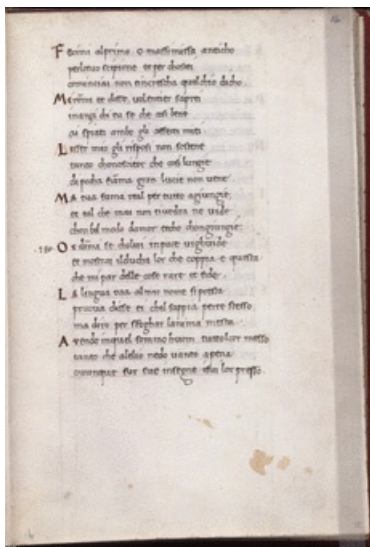 Fecimi alprimo. o massinissa anticho
per lotuo scipione et per chostei
comenciai non tincrescha quelchio dicho
Mirommi et disse. volentier saprei
inanzi chi tu se che cosi bene
ai spiati ambo gli affetti miei
Lesser mio gli risposi non sostene
tanto chonoscitor che cosi lunge
da pocha fiama gran luce non vene
Ma tua fama real per tutto agiunge
et tal che mai non ti vedra ne vide
chon bel nodo damor techo chongiunge
Or dimi se cholui in pace vi ghuide
et mostrai il ducha lor che coppia e questa
che mi par delle cose rare et fide
La lingua tua al mio nome si presta
prova disse ei chel sappia per te stesso
ma diro per sfoghar lanima mesta
Avendo in quel somno huom tutto il cor messo
tanto che alelio nedo vanto apena
ovunque fur sue insegne fui lor presso.